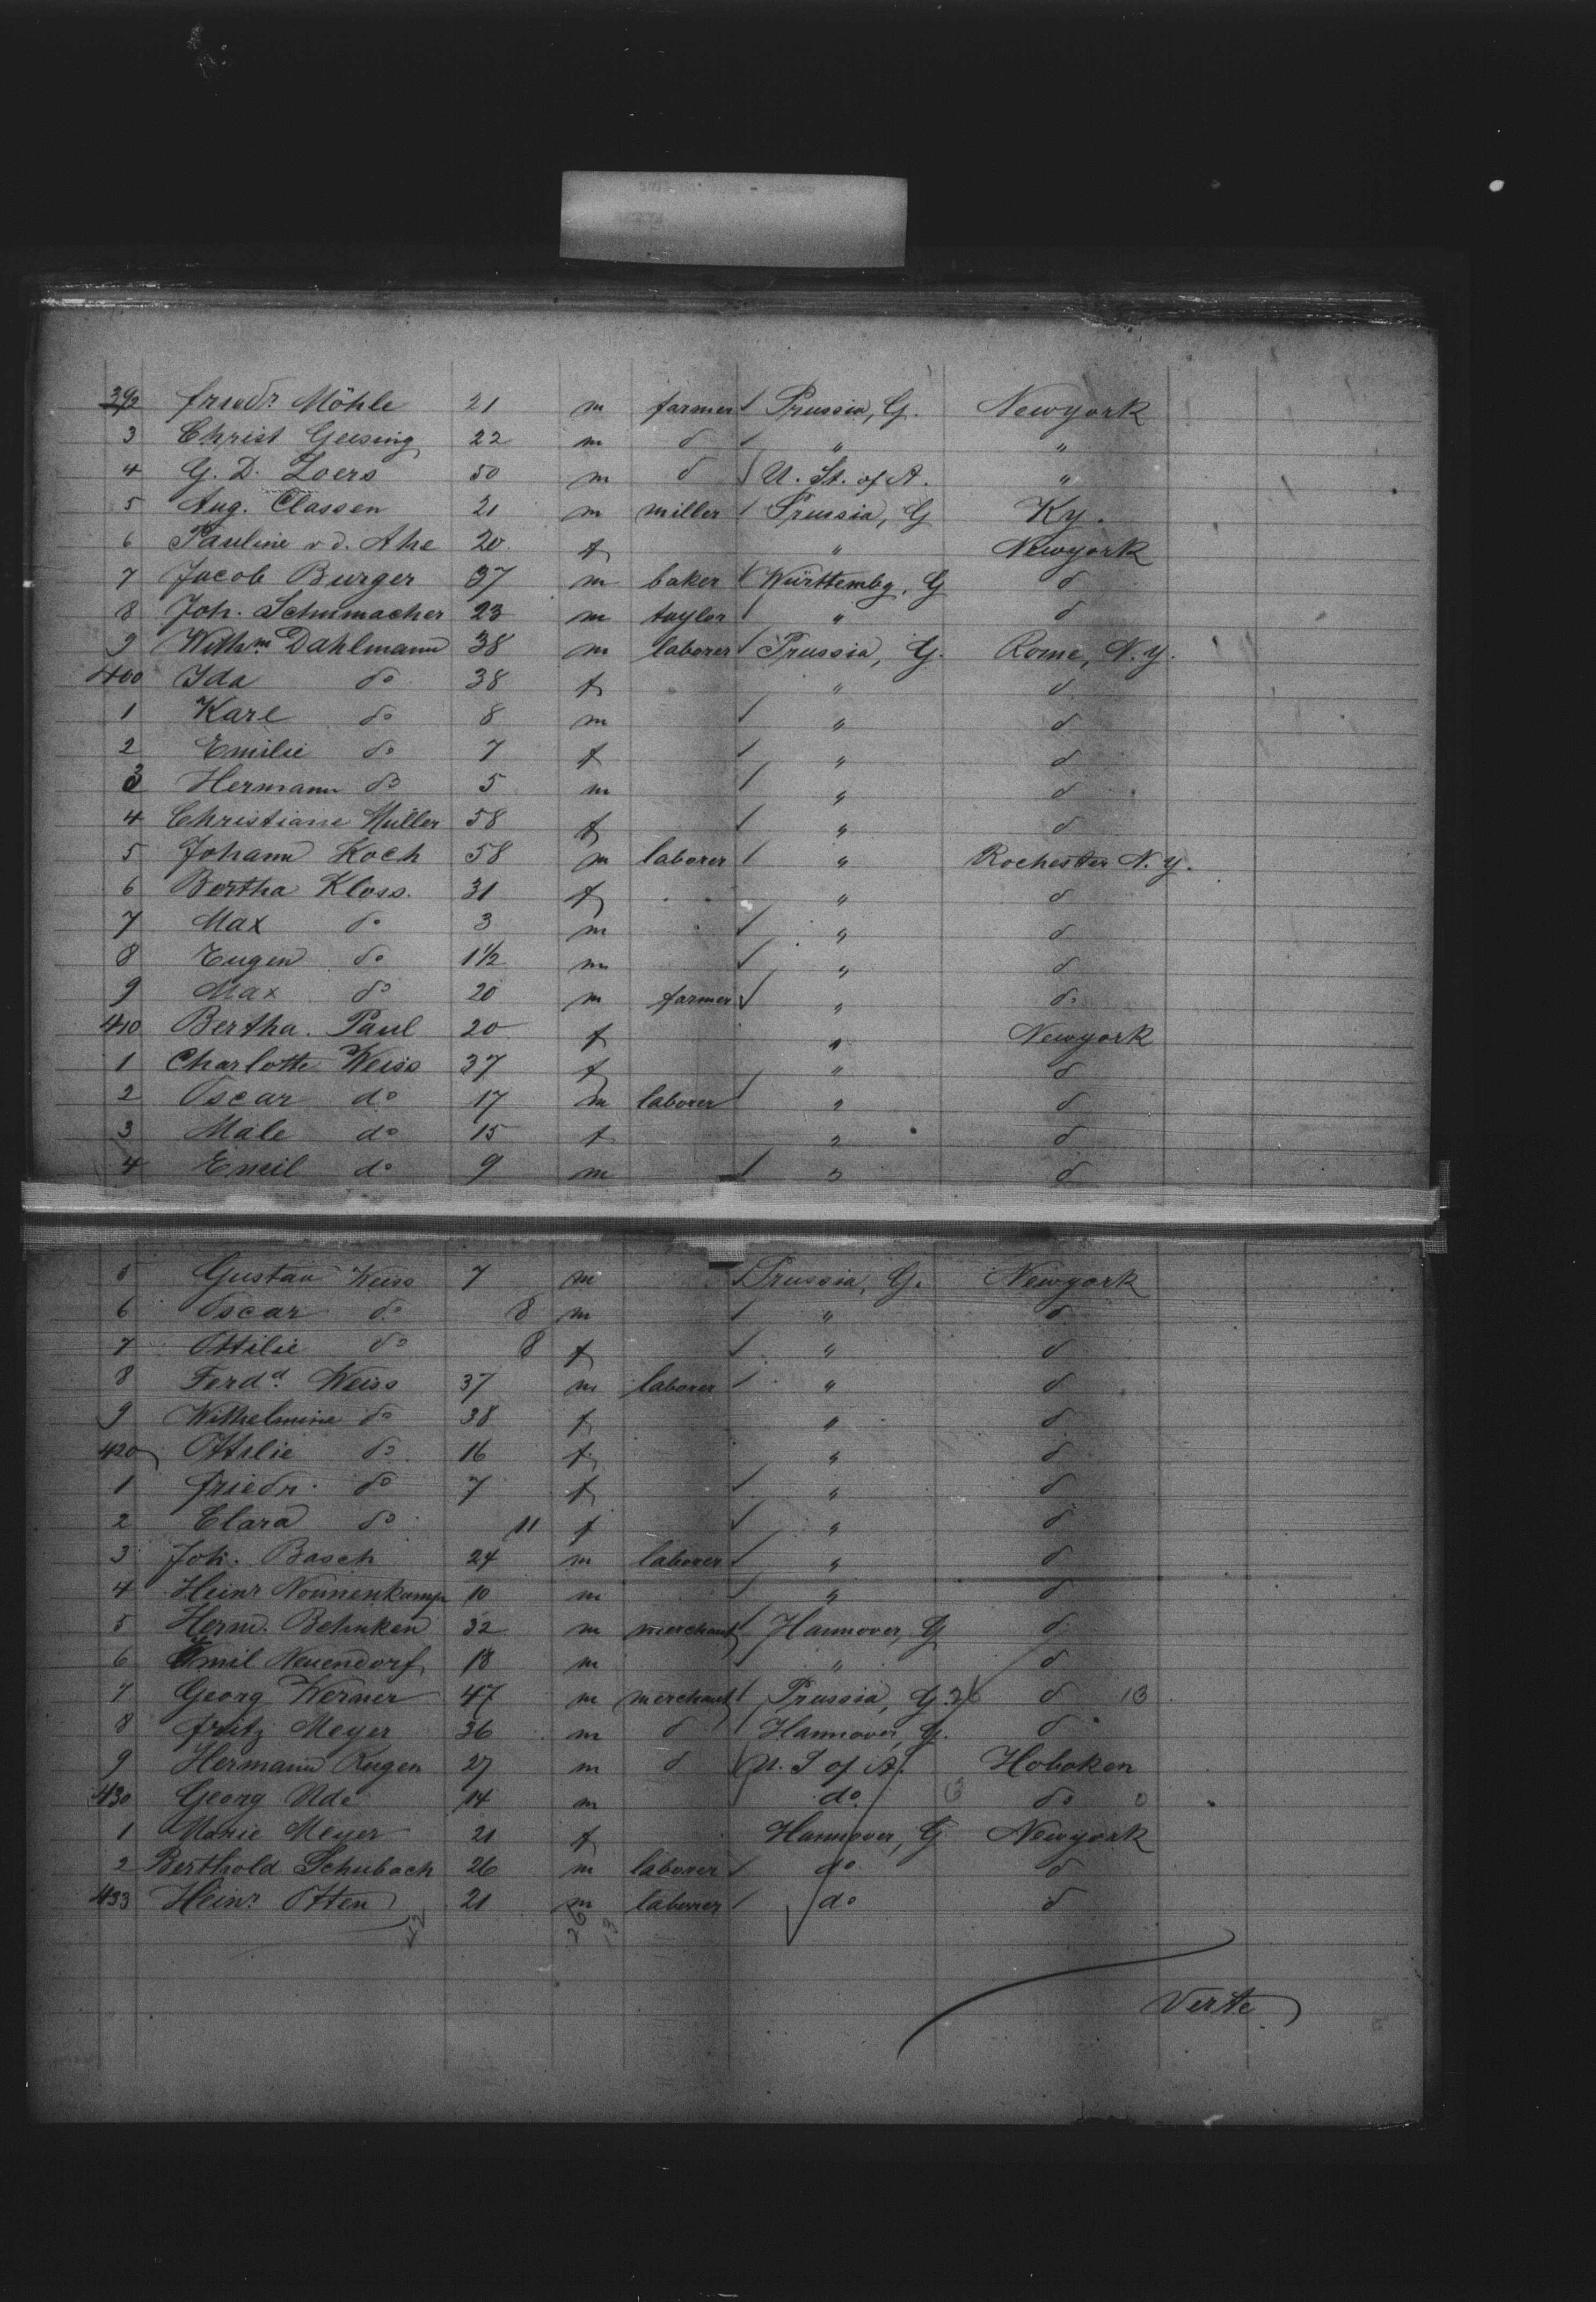 392 Friedr Möhle 21 m farmer Prussia, G. Newyork
3 Christ Geising 22 m d " "
4 G. D. Loers 50 m d U. St. of A. "
5 Aug. Classen 21 m miller Prussia, G Ky.
6 Pauline v d. Ahe 20 f " Newyork
7 Jacob Burger 37 m baker Württembg, G d
8 Joh. Schumacher 23 m taylor " d
9 Wilhm Dahlmann 38 m laborer Prussia, G. Rome, N.Y.
400 Ida do 38 f " d
1 Karl do 8 m " d
2 Emilie do 7 f " d
3 Hermann do 5 m " d
4 Christiane Müller 58 f " d
5 Johann Koch 58 m laborer " Rochester N.Y.
6 Bertha Kloss. 31 f " d
7 Max do 3 m " d
8 Eugen do 1½ m " d
9 Max do 20 m farmer " do
410 Bertha Paul 20 f " Newyork
1 Charlotte Weiss 37 f " d
2 Oscar do 17 m laborer " d
3 Male do 15 f " d
4 Emil do 9 m " d
5 Gustav Weiss 7 m Prussia, G. Newyork
6 Oscar do 8 m " d
7 Ottilie do 8 f " d
8 Ferdd. Weiss 37 m laborer " d
9 Wilhelmine do 38 f " d
420 Ottilie do 16 f " d
1 Friedr. do 7 f " d
2 Clara do 11 f " d
3 Joh. Basch 24 m laborer " d
4 Heinr Nonnenkamp 10 m " d
5 Herm. Behnken 32 m merchant Hannover, G d
6 Emil Neuendorf 18 m " d
7 Georg Werner 47 m merchant Prussia, G. 26 d 13
8 Fritz Meyer 36 m d Hannover, G. d
9 Hermann Rugen 27 m d U. S of A. Hoboken
430 Georg Ude 14 m do do
1 Marie Meyer 21 f Hannover, G Newyork
2 Berthold Schubach 26 m laborer do d
433 Heinr Otten 21 m laborer do d
26 13
Verte